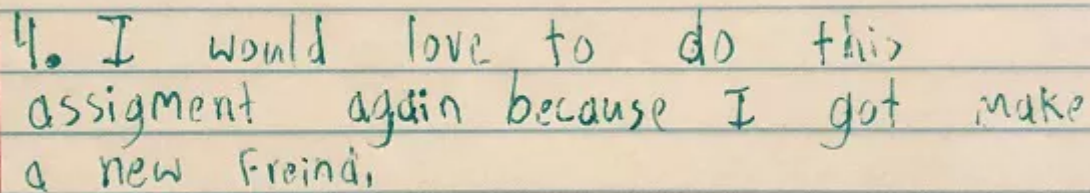 4. I would love to do this
assigment again because I got make
a new Freind,